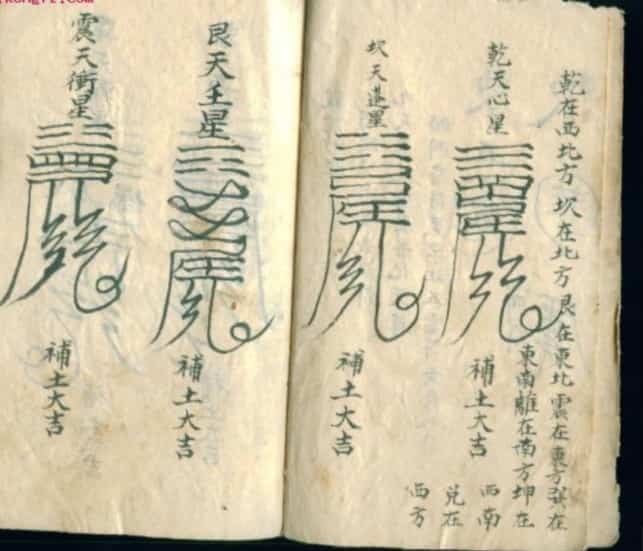 乾在西北方 坎在北方艮在東北震在東方巽在
東南離在南方坤在
西南
兌在
西方
乾天心星
補土大吉
坎天蓬星
補土大吉
艮天壬星
補土大吉
震天衝星
補土大吉